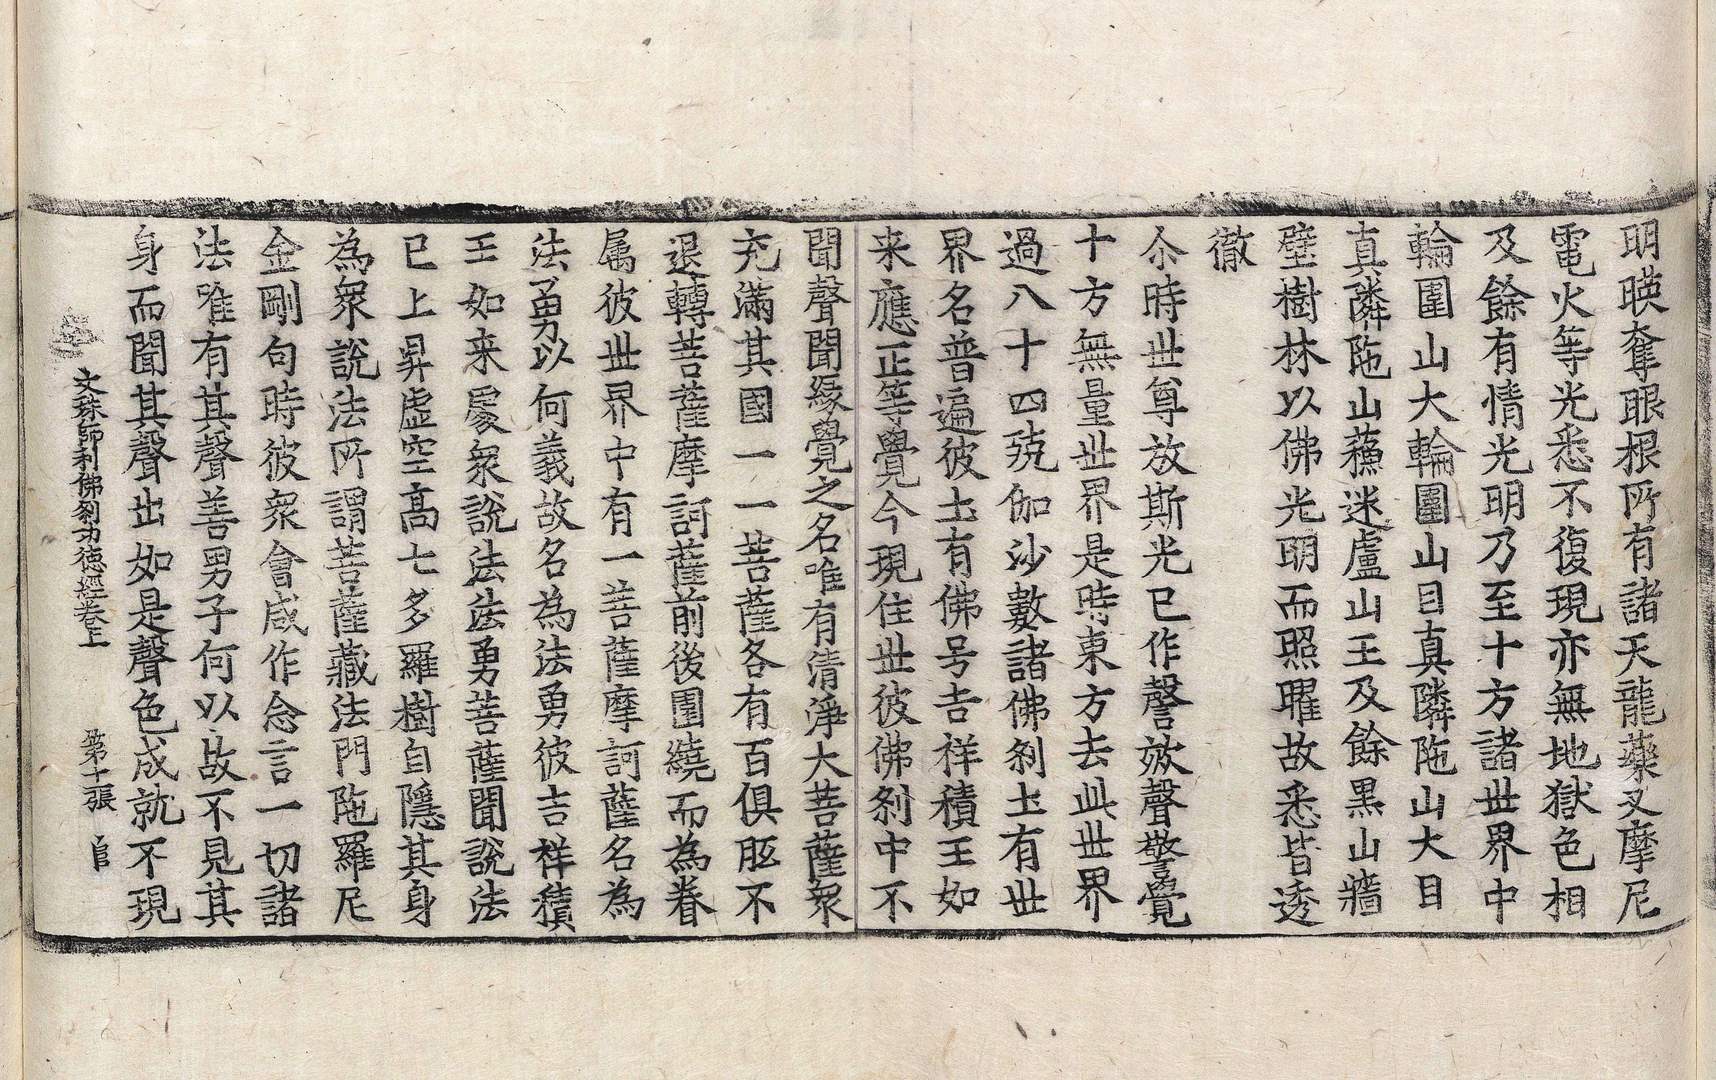 明暎奪眼根所有諸天龍藥叉摩尼
電火等光悉不復現亦無地獄色相
及餘有情光明乃至十方諸世界中
輪圍山大輪圍山目真隣陁山大目
真隣陁山蘓迷盧山王及餘黒山牆
壁樹林以佛光明而照曜故悉皆透
徹
尒時世尊放斯光已作謦欬聲警覺
十方無量世界是時東方去此世界
過八十四殑伽沙數諸佛刹土有世
界名普遍彼土有佛号吉祥積王如
来應正等覺今現住世彼佛刹中不
聞聲聞緣覺之名唯有清淨大菩薩衆
充滿其國一一菩薩各有百俱胝不
退轉菩薩摩訶薩前後圍繞而為眷
属彼世界中有一菩薩摩訶薩名為
法勇以何義故名為法勇彼吉祥積
王如来處衆說法法勇菩薩聞說法
已上昇虚空高七多羅樹自隱其身
為衆說法所謂菩薩藏法門陁羅尼
金剛句時彼衆會咸作念言一切諸
法唯有其聲善男子何以故不見其
身而聞其聲出如是聲色成就不現
文殊師利佛刹功德經卷上 第十張